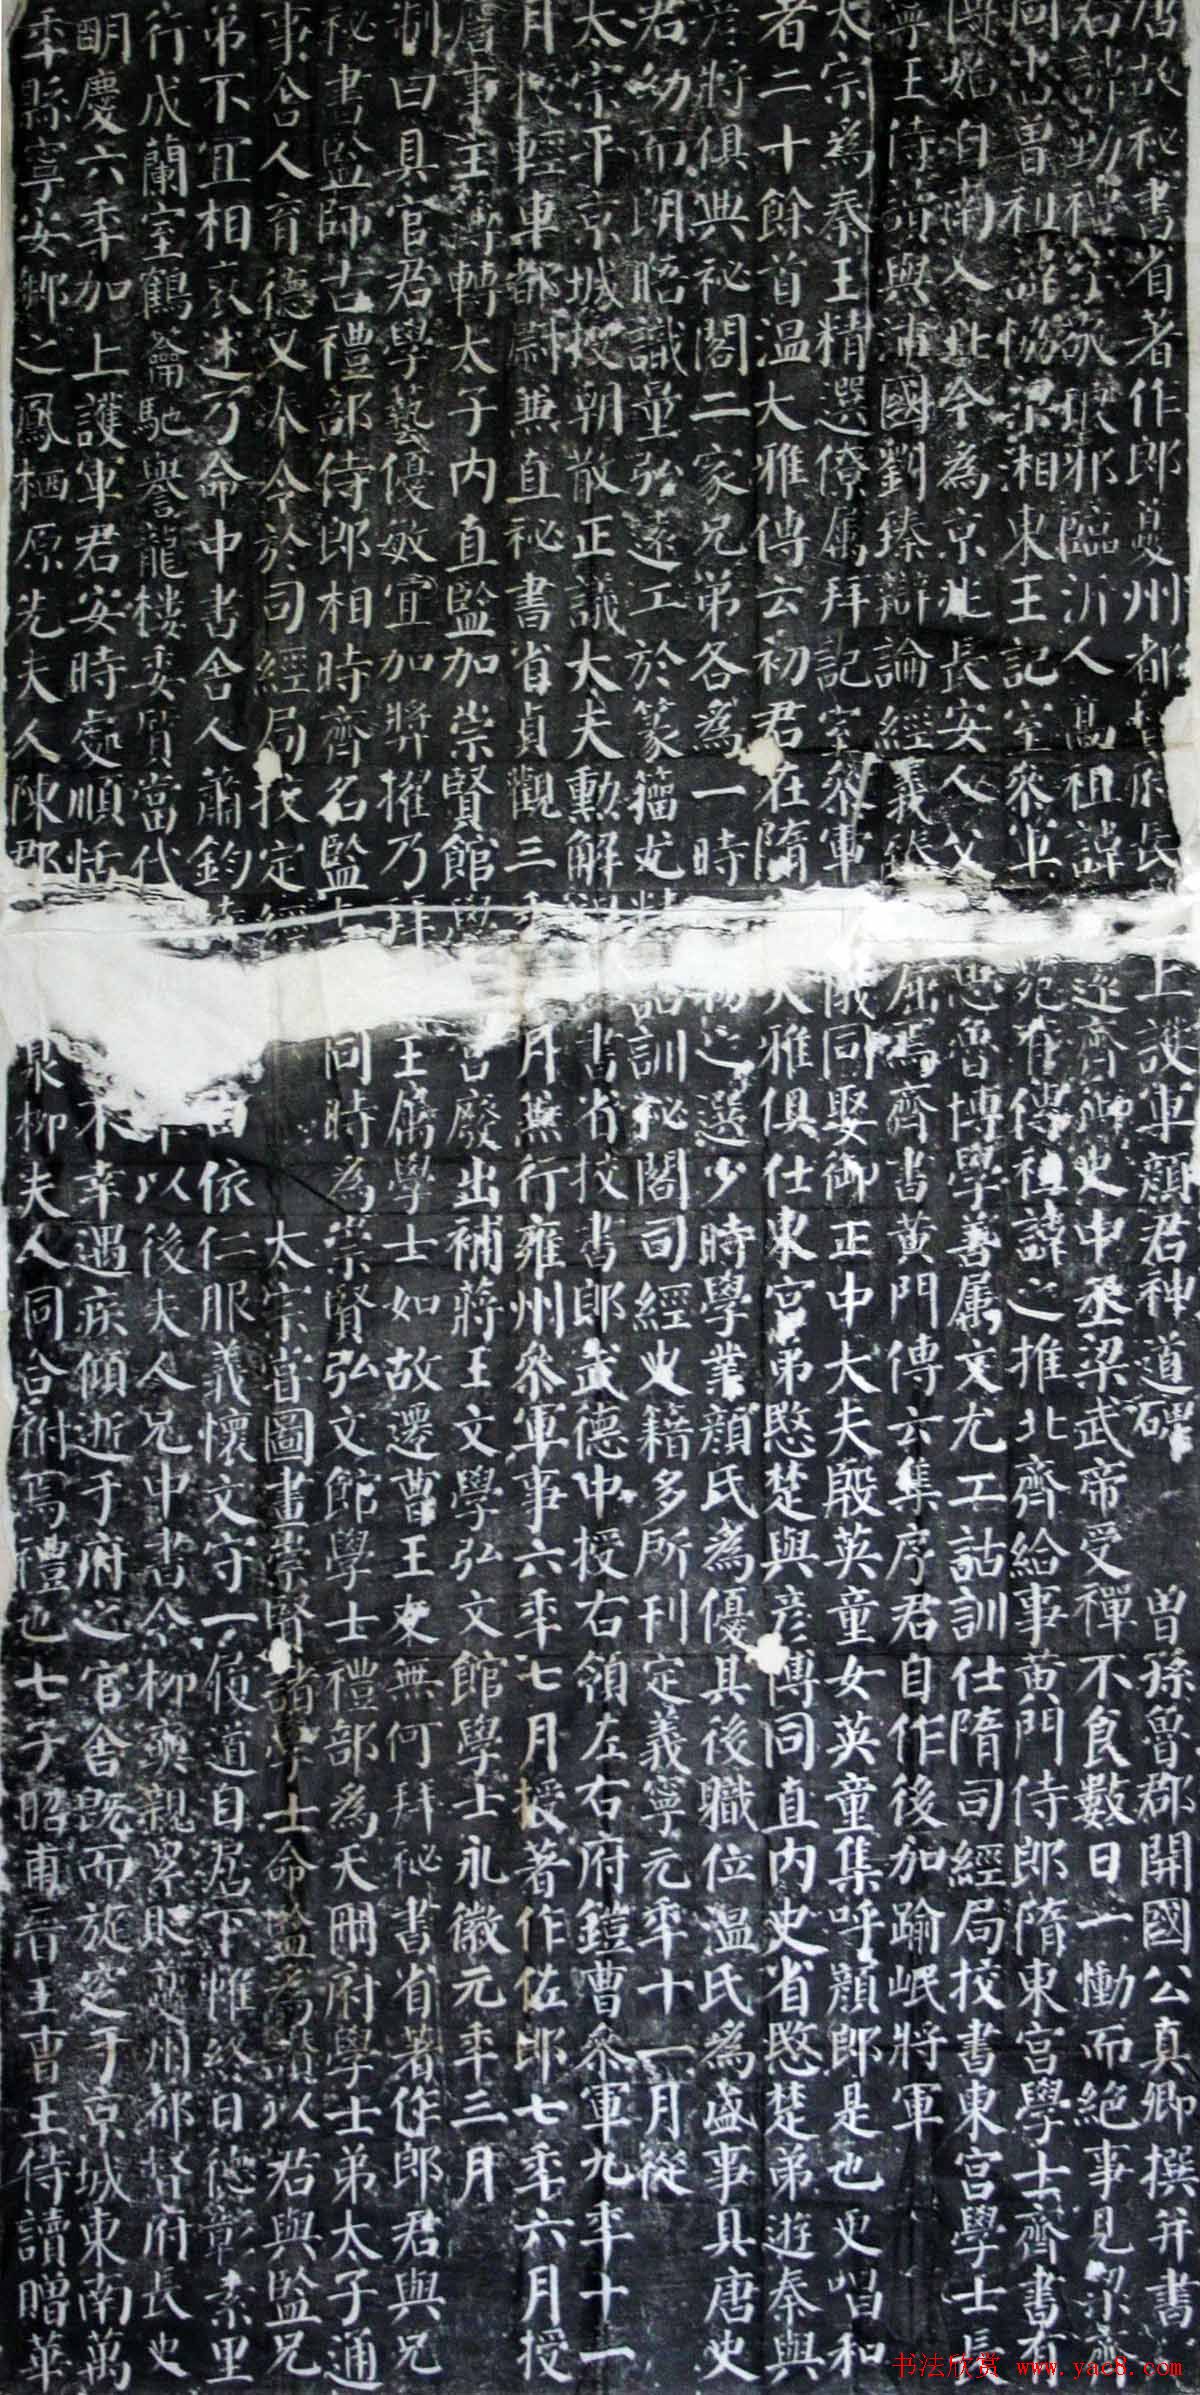 唐故秘書省著作郎夔州都督府長上護軍顏君神道碑 曾孫魯郡開國公真卿撰并書
君諱勤禮字敬琅邪臨沂人高祖諱逐齊御史中丞梁武帝受禪不食數日一慟而絕事見梁齊
周書曾祖諱協梁湘東王記室參軍苑有傳祖諱之推北齊給事黃門侍郎隋東宮學士齊書有
傳始自南入北今為京兆長安人父思魯博學善屬文尤工詁訓仕隋司經局校書東宮學士長
寧王侍讀與沛國劉臻辯論經義臻屈焉齊書黃門傳云集序君自作後加踰岷將軍
太宗為秦王精選僚屬拜記室參軍儀同娶御正中大夫殷英童女英童集呼顏郎是也更唱和
者二十餘首溫大雅傳云初君在隋大雅俱仕東宮弟愍楚與彥博同直內史省愍楚弟遊秦與
彥將俱典祕閣二家兄弟各為一時物之選少時學業顏氏為優其後職位溫氏為盛事具唐史
君幼而朗晤識量弘遠工於篆籀尤精詁訓祕閣司經史籍多所刊定義寧元年十一月從
太宗平京城授朝散正議大夫勳解褐書省校書郎武德中授右領左右府鎧曹參軍九年十一
月授輕車都尉兼直秘書省貞觀三年月兼行雍州參軍事六年七月授著作佐郎七年六月授
詹事主簿轉太子內直監加崇賢館學宮廢出補蔣王文學弘文館學士永徽元年三月
制曰具官君學藝優敏宜加獎擢乃拜王屬學士如故遷曹王友無何拜秘書省著作郎君與兄
秘書監師古禮部侍郎相時齊名監與同時為崇賢弘文館學士禮部為天冊府學士弟太子通
事舍人育德又奉令於司經局校定經太宗嘗圖畫崇賢諸學士命監為讚以君與監兄
弟不宜相褒述乃命中書舍人蕭鈞依仁服義懷文守一履道自居下帷終日德彰素里
行成蘭室鶴籥馳譽龍樓委質當代以後夫人兄中書令柳奭親累貶夔州都督府長史
明慶六年加上護軍君安時處順恬不幸遇疾傾逝于府之官舍既而旋窆于京城東南萬
年縣寧安鄉之鳳栖原先夫人陳郡泉柳夫人同合祔焉禮也七子昭甫晉王曹王侍讀贈華
书法欣赏 www.yac8.com